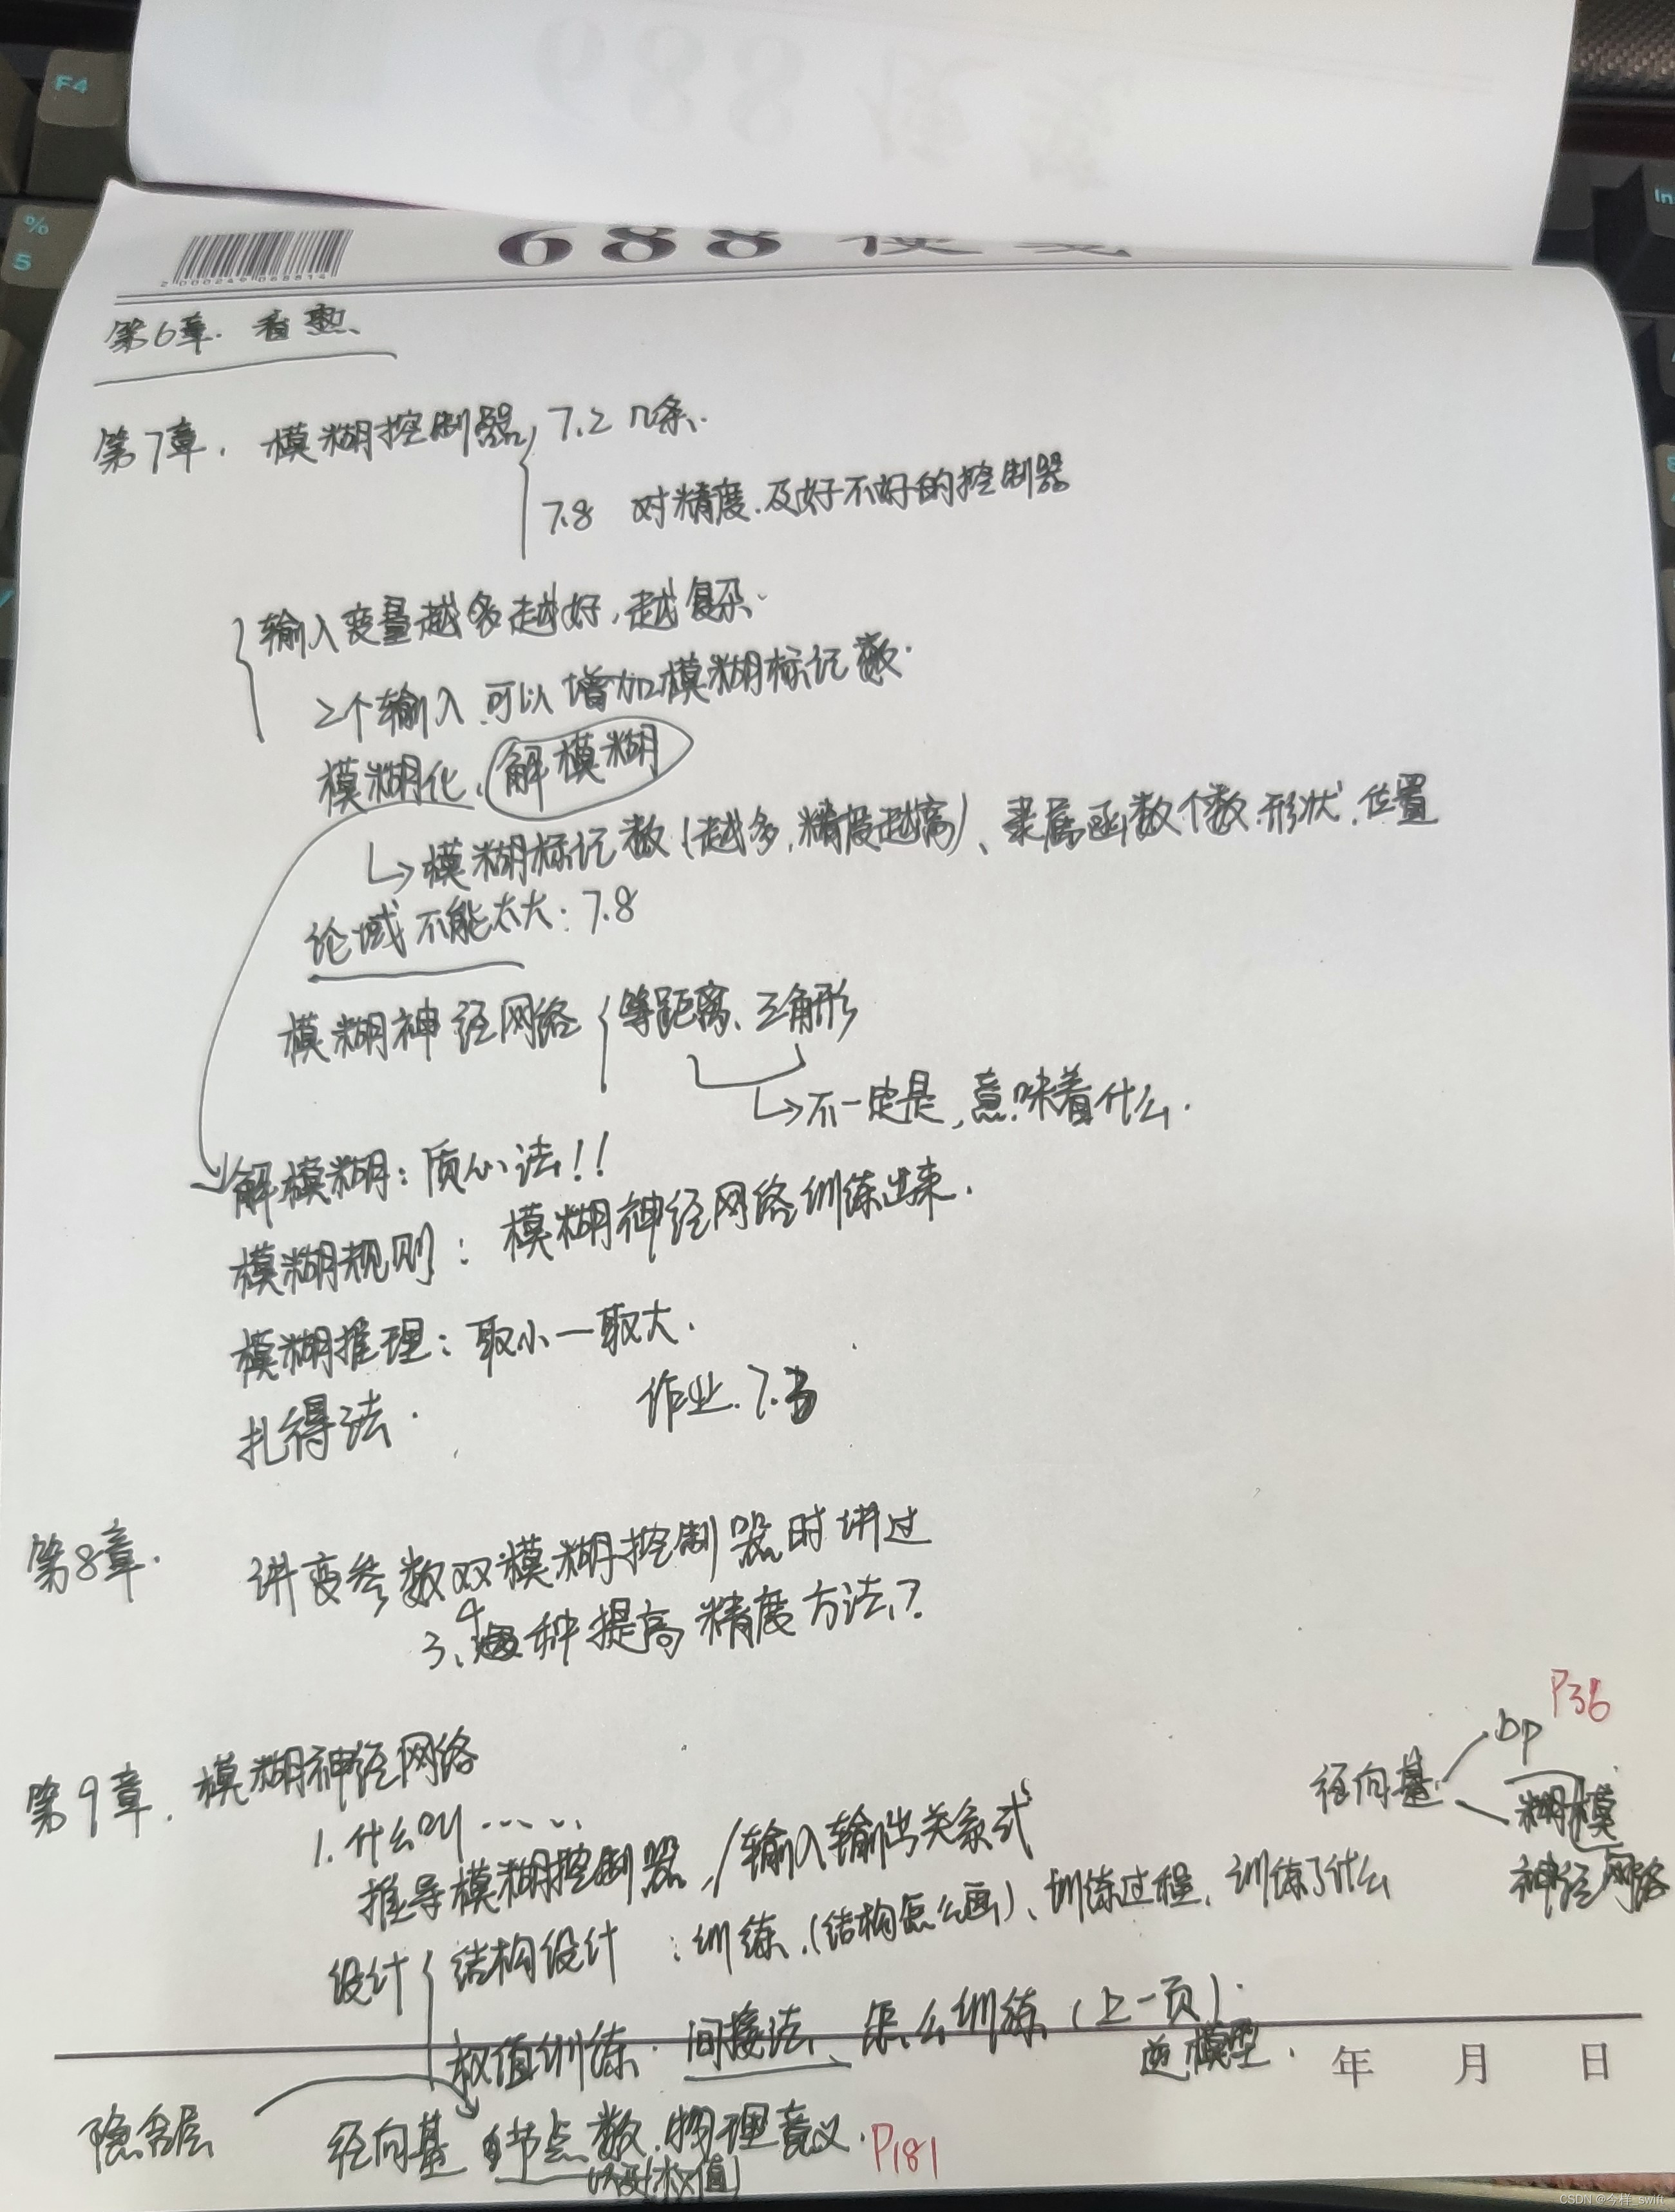 F4
%
5
In
688 便笺
2000246068814
第6章. 看熟、
第7章. 模糊控制器, 7.2 几条.
7.8 对精度.及好不好的控制器
输入变量越多越好,越复杂.
2个输入.可以增加模糊标记数.
模糊化、解模糊
↳模糊标记数(越多,精度越高)、隶属函数个数.形状.位置
论域不能太大:7.8
模糊神经网络 等距离、三角形
↳不一定是,意味着什么.
解模糊:质心法!!
模糊规则:模糊神经网络训练出来.
模糊推理:取小一取大.
扎得法. 作业.7.3
第8章. 讲变参数双模糊控制器时讲过
3、4种提高精度方法?
P36
第9章. 模糊神经网络
径向基 bp
糊模
神经网络
1.什么叫……
推导模糊控制器/输入输出关系式
设计 结构设计:训练.(结构怎么画)、训练过程.训练了什么
权值训练.间接法、怎么训练(上一页).
逆模型.
年 月 日
隐含层 径向基 节点数.物理意义. P181
(权值)
CSDN @今样_swift